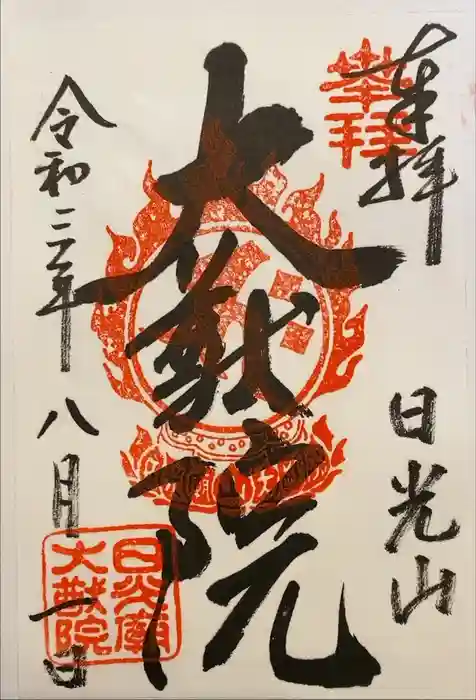 奉拝
日光山
大猷院
令和三年八月一日
奉拝
日光廟
大猷院